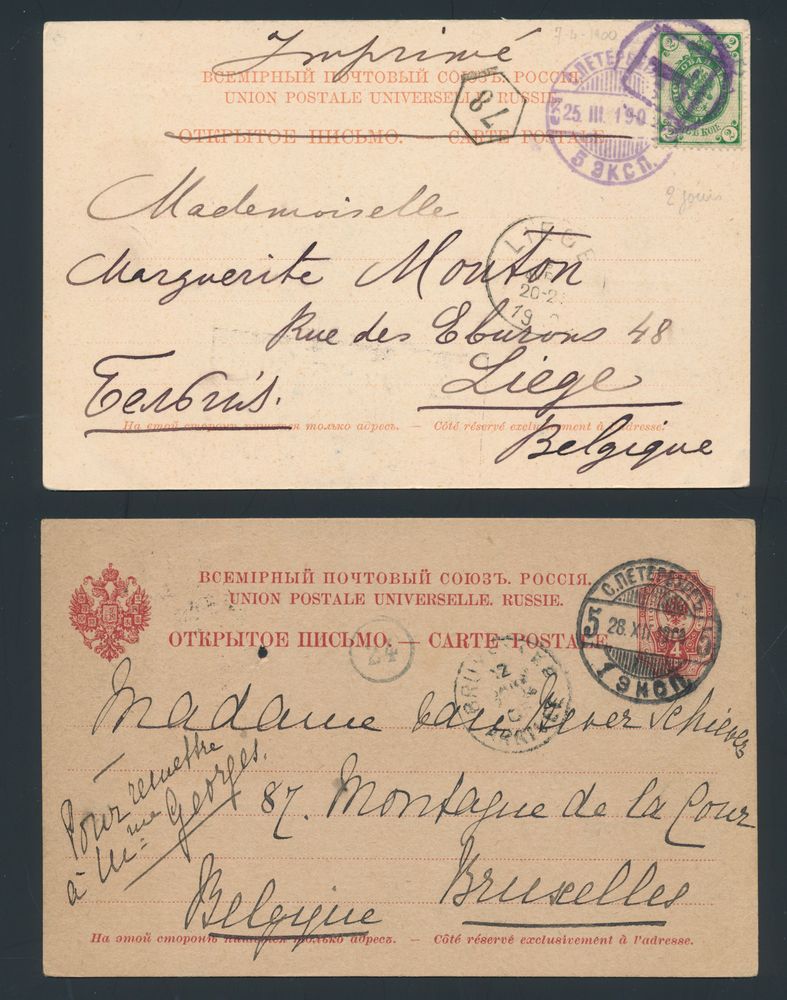 7-4-1900
Imprimé
ВСЕМІРНЫЙ ПОЧТОВЫЙ СОЮЗЪ. РОССІЯ.
UNION POSTALE UNIVERSELLE. RUSSIE.
ОТКРЫТОЕ ПИСЬМО. — CARTE POSTALE.
78
25 III. 190
5 ЭКСП.
2
2
2 jours
Mademoiselle
Marguerite Mouton
LIEGE
20-2
19
Rue des Eburons 48
Бельгія.
Liège
На этой сторонѣ пишется только адресъ. — Côté réservé exclusivement à l'adresse.
Belgique
ВСЕМІРНЫЙ ПОЧТОВЫЙ СОЮЗЪ. РОССІЯ.
UNION POSTALE UNIVERSELLE. RUSSIE.
ОТКРЫТОЕ ПИСЬМО. — CARTE POSTALE
С.ПЕТЕРБУРГЪ
5 26 XII
1 ЭКСП.
4
24
Madame van
87. Montagne de la Cour
Bruxelles
Belgique
Pour remettre
à Mme Georges.
На этой сторонѣ пишется только адресъ. — Côté réservé exclusivement à l'adresse.